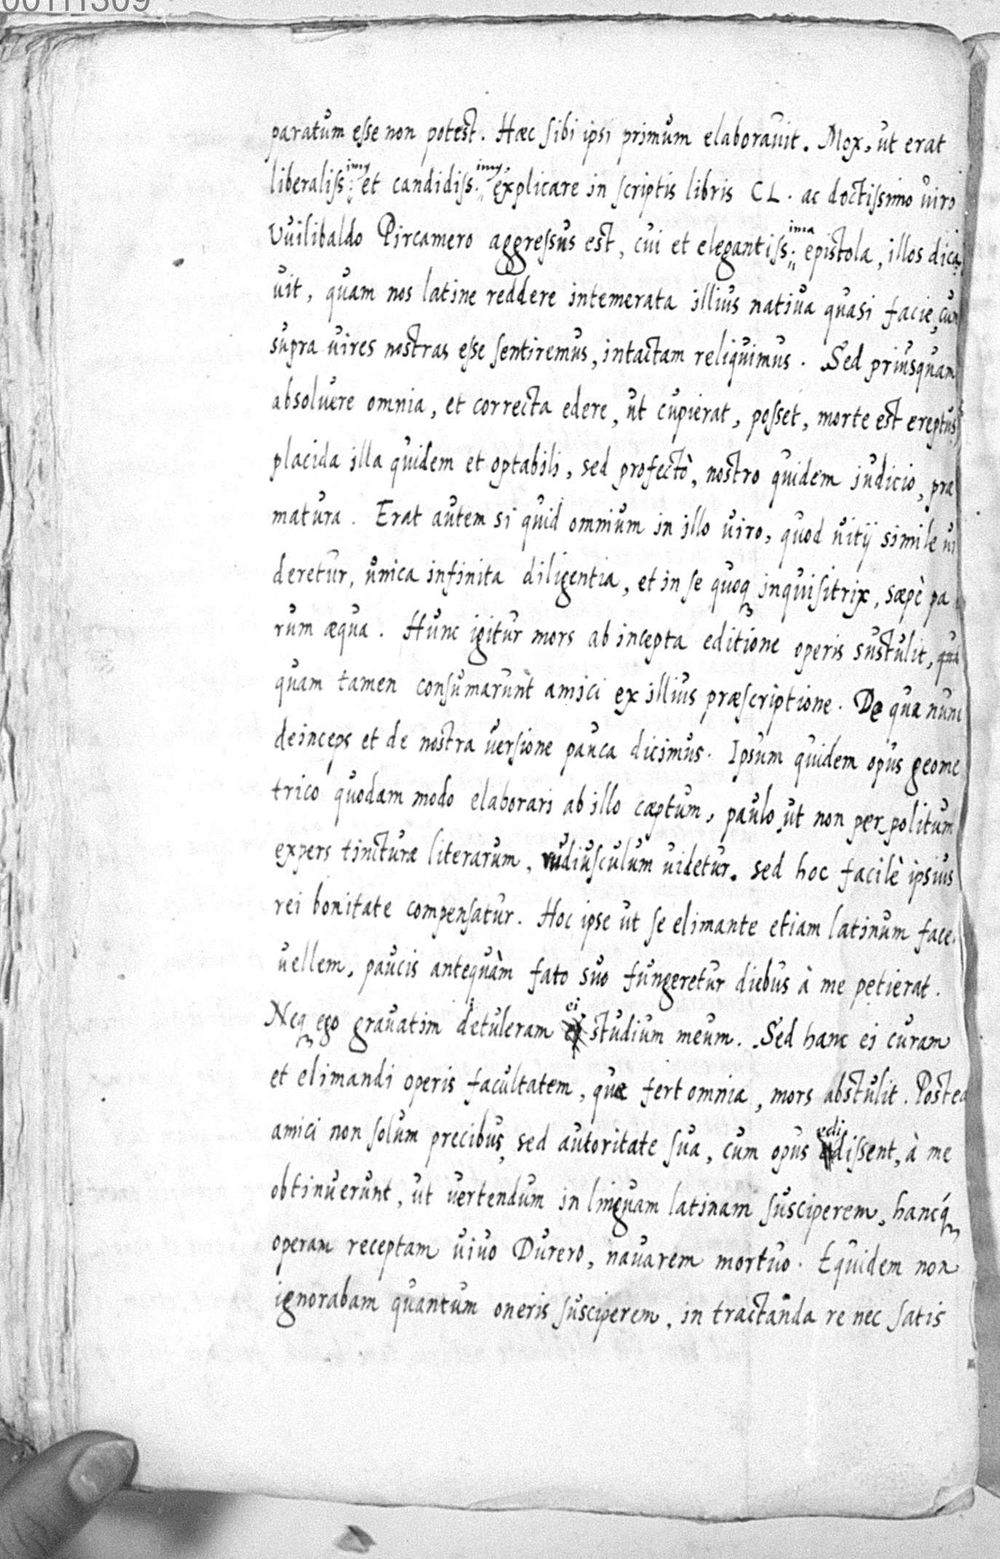 00111309
paratum esse non potest. Hæc sibi ipsi primum elaborauit. Mox, ut erat
liberaliss:imus et candidiss:imus explicare in scriptis libris CL. ac doctissimo uiro
Vuilibaldo Pircamero aggressus est, cui et elegantiss:ima epistola, illos dica
uit, quam nos latine reddere intemerata illius natiua quasi facie, cum
supra uires nostras esse sentiremus, intactam reliquimus. Sed priusquam
absoluere omnia, et correcta edere, ut cupierat, posset, morte est ereptus
placida illa quidem et optabili, sed profectò, nostro quidem iudicio, præ
matura. Erat autem si quid omnium in illo uiro, quod uitij simile ui
deretur, unica infinita diligentia, et in se quoq inquisitrix, sæpè pa
rum æqua. Hunc igitur mors ab incepta editione operis sustulit, qua
quam tamen consumarunt amici ex illius præscriptione. De qua nunc
deinceps et de nostra uersione pauca dicimus. Ipsum quidem opus geome
trico quodam modo elaborari ab illo cæptum, paulo ut non perpolitum
expers tincturæ literarum, rudiusculum uidetur. sed hoc facilè ipsius
rei bonitate compensatur. Hoc ipse ut se elimante etiam latinum face
uellem, paucis antequàm fato suo fungeretur diebus à me petierat.
Neq ego grauatim detuleram ei studium meum. Sed hanc ei curam
et elimandi operis facultatem, quæ fert omnia, mors abstulit. Postea
amici non solum precibus, sed autoritate sua, cum opus edidissent, à me
obtinuerunt, ut uertendum in linguam latinam susciperem, hancq́
operam receptam uiuo Durero, nauarem mortuo. Equidem non
ignorabam quantum oneris susciperem, in tractanda re nec satis